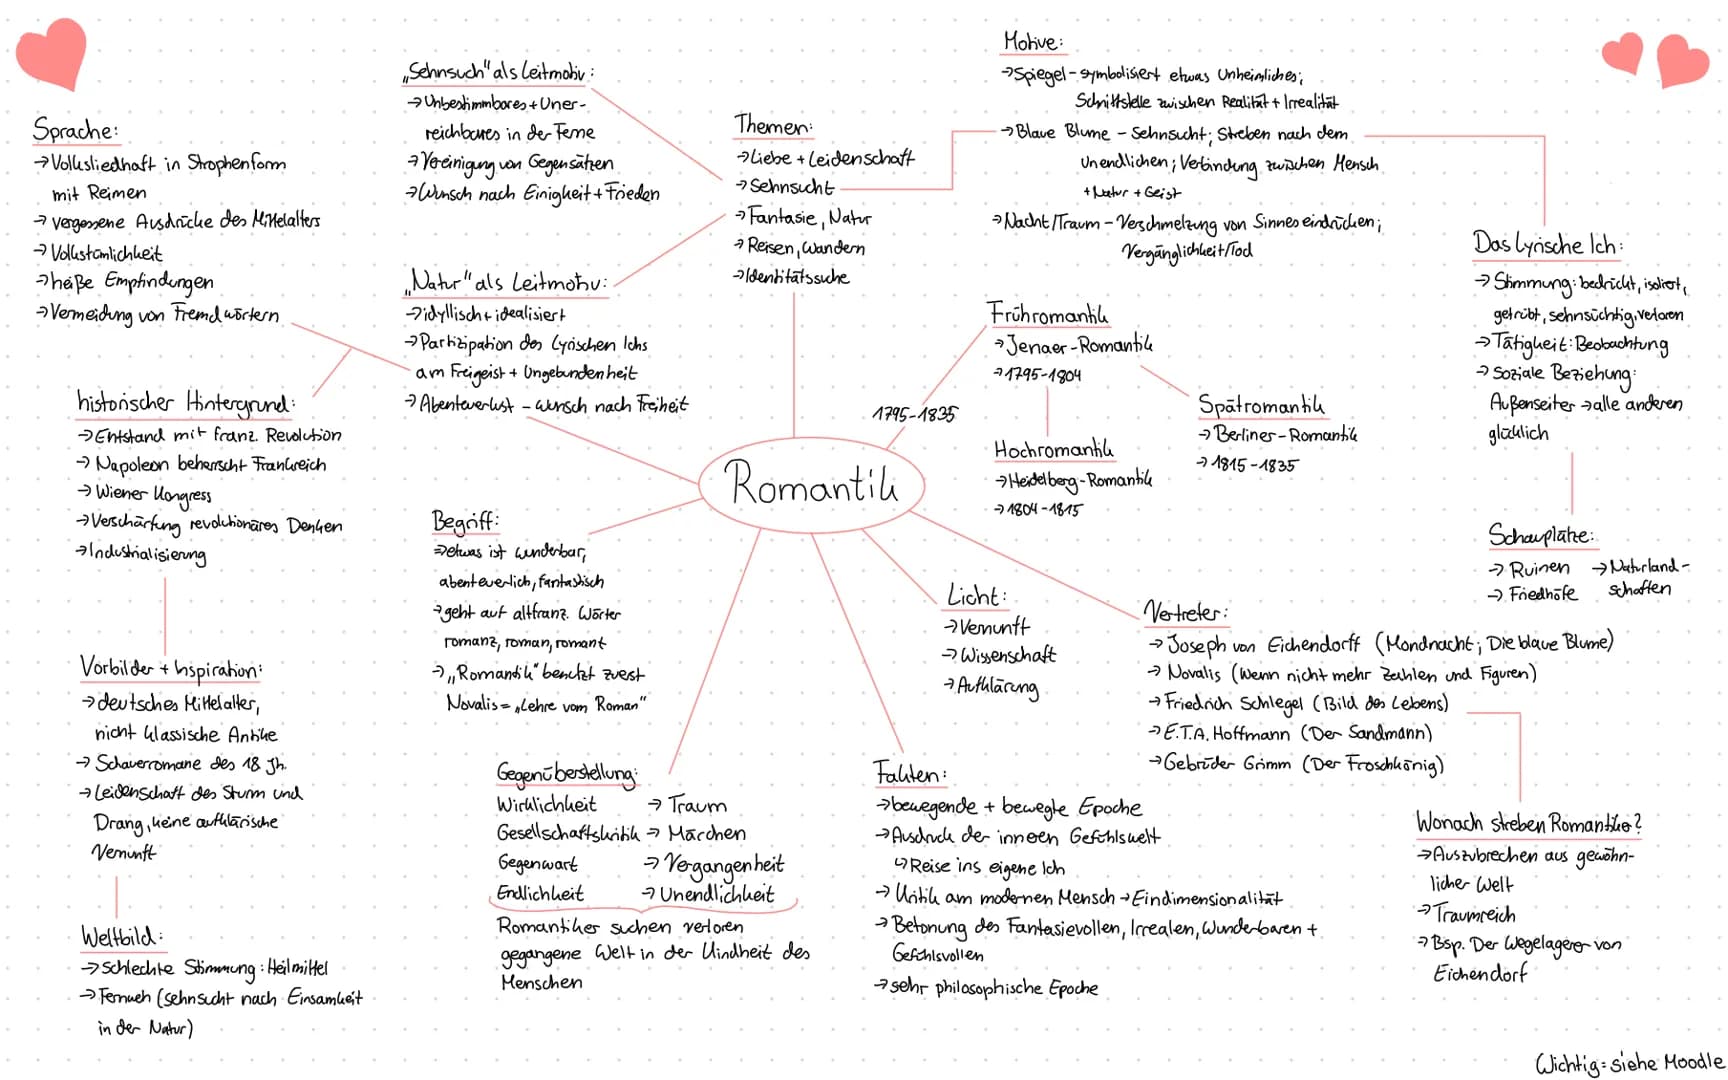 „Sehnsuch" als Leitmotiv:
→ Unbestimmbares + Uner-
reichbares in der Ferne
→ Vereinigung von Gegensätzen
→ Wunsch nach Einigkeit + Frieden
Sprache:
→ Volksliedhaft in Strophenform
mit Reimen
→ vergessene Ausdrücke des Mittelalters
→ Volkstümlichkeit
→ heiße Empfindungen
→ Vermeidung von Fremdwörtern
Themen:
→ Liebe + Leidenschaft
→ Sehnsucht
→ Fantasie, Natur
→ Reisen, Wandern
→ Identitätssuche
Motive:
→ Spiegel - symbolisiert etwas Unheimliches;
Schnittstelle zwischen Realität + Irrealität
→ Blaue Blume - Sehnsucht; Streben nach dem
unendlichen; Verbindung zwischen Mensch
+ Natur + Geist
→ Nacht/Traum - Verschmelzung von Sinneseindrücken;
Vergänglichkeit/Tod
Das Lyrische Ich:
→ Stimmung: bedrückt, isoliert,
getrübt, sehnsüchtig, verloren
→ Tätigkeit: Beobachtung
→ soziale Beziehung:
Außenseiter → alle anderen
glücklich
Schauplätze:
→ Ruinen → Naturland-
→ Friedhöfe schaften
„Natur" als Leitmotiv:
→ idyllisch + idealisiert
→ Partizipation des Lyrischen Ichs
am Freigeist + Ungebundenheit
→ Abenteuerlust - Wunsch nach Freiheit
historischer Hintergrund:
→ Entstand mit franz. Revolution
→ Napoleon beherrscht Frankreich
→ Wiener Kongress
→ Verschärfung revolutionäres Denken
→ Industrialisierung
1795-1835
Frühromantik
→ Jenaer-Romantik
→ 1795-1804
Hochromantik
→ Heidelberg-Romantik
→ 1804-1815
Spätromantik
→ Berliner-Romantik
→ 1815-1835
Romantik
Begriff:
→ etwas ist wunderbar,
abenteuerlich, fantastisch
→ geht auf altfranz. Wörter
romanz, roman, romant
→ „Romantik" benutzt zuerst
Novalis = „Lehre vom Roman"
Licht:
→ Vernunft
→ Wissenschaft
→ Aufklärung
Vertreter:
→ Joseph von Eichendorff (Mondnacht; Die blaue Blume)
→ Novalis (Wenn nicht mehr Zahlen und Figuren)
→ Friedrich Schlegel (Bild des Lebens)
→ E.T.A. Hoffmann (Der Sandmann)
→ Gebrüder Grimm (Der Froschkönig)
Vorbilder + Inspiration:
→ deutsches Mittelalter,
nicht klassische Antike
→ Schauerromane des 18 Jh.
→ Leidenschaft des Sturm und
Drang, keine aufklärische
Vernunft
Weltbild:
→ schlechte Stimmung: Heilmittel
→ Fernweh (sehnsucht nach Einsamkeit
in der Natur)
Gegenüberstellung:
Wirklichkeit → Traum
Gesellschaftskritik → Märchen
Gegenwart → Vergangenheit
Endlichkeit → Unendlichkeit
Romantiker suchen verloren
gegangene Welt in der Kindheit des
Menschen
Fakten:
→ bewegende + bewegte Epoche
→ Ausdruck der inneren Gefühlswelt
↳ Reise ins eigene Ich
→ Kritik am modernen Mensch → Eindimensionalität
→ Betonung des Fantasievollen, Irrealen, Wunderbaren +
Gefühlsvollen
→ sehr philosophische Epoche
Wonach streben Romantiker?
→ Auszubrechen aus gewöhn-
licher Welt
→ Traumreich
→ Bsp. Der Wegelagerer von
Eichendorf
Wichtig: siehe Moodle